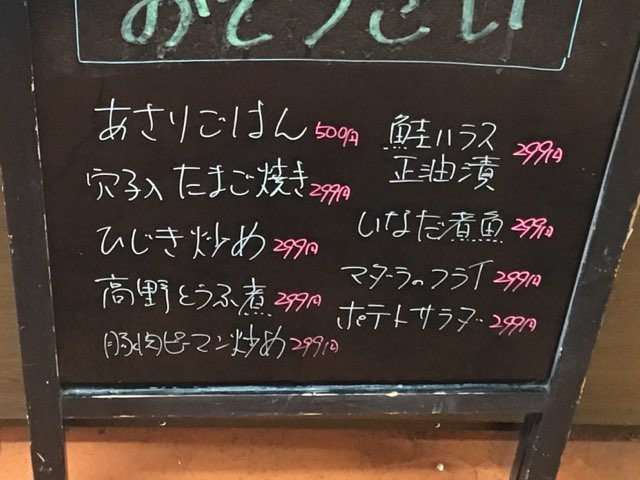 おそうざい
あさりごはん 500円
穴子入たまご焼き 299円
ひじき炒め 299円
高野とうふ煮 299円
豚肉ピーマン炒め 299円
鮭ハラス
正油漬 299円
いなだ煮魚 299円
マダラのフライ 299円
ポテトサラダ 299円